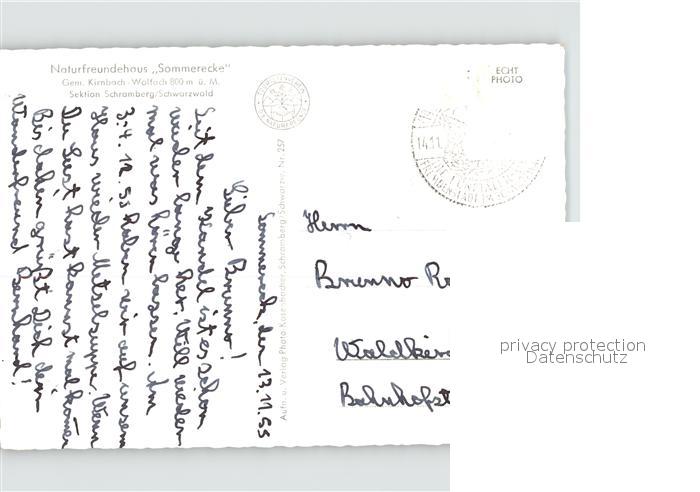 Naturfreundehaus „Sommerecke"
Gem. Kirnbach-Wolfach 800 m ü. M.
Sektion Schramberg/Schwarzwald
Sommerecke, den 13.11.55
Lieber Brunno!
Seit dem Kandel ist es schon
wieder lange her. Will wieder
mal was hören lassen. Am
3.-4. 12.55 haben wir auf unsem
Haus wieder Metzelsuppe. Wenn
Du Lust hast kannst mal komen
Bis dahin grüßt Dich dein
Wanderfreund Bernhard!
Aufn. u. Verlag Photo-Kasenbacher, Schramberg/Schwarzw. Nr. 257
ECHT
PHOTO
14.11.
Herrn
Brunno Ro
Waldkirc
Bahnhofst
privacy protection
Datenschutz